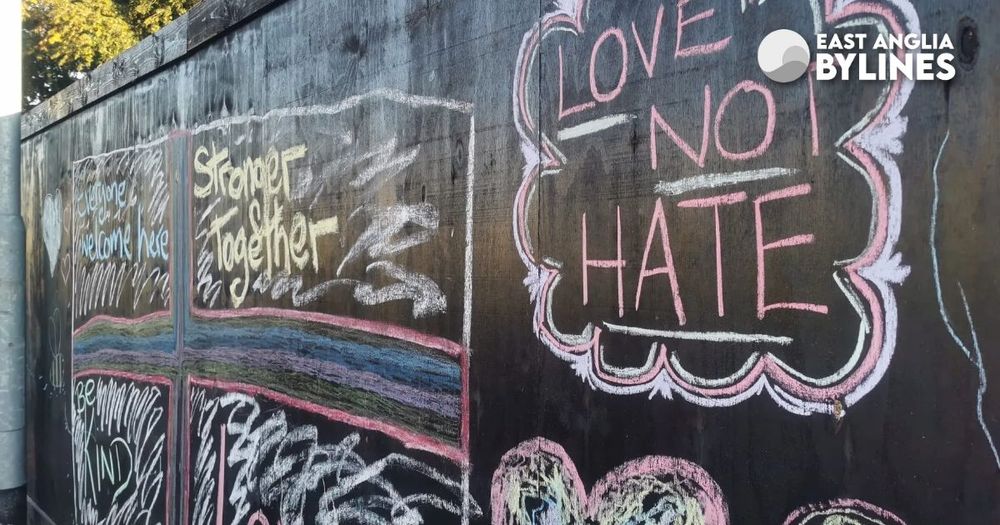 everyone
welcome here
Stronger
Together
Be
KIND
LOVE
NOT
HATE
EAST ANGLIA
BYLINES